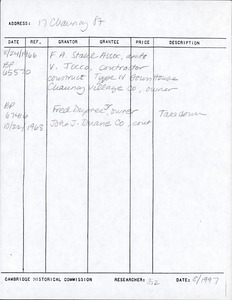 ADDRESS: 17 Chauncy St
DATE REF. GRANTOR GRANTEE PRICE DESCRIPTION
5/24/1966 F.A. Stahl Assoc, archt
BP V. Tocco, contractor
65570 construct Type IV townhouse
Chauncy Village Co, owner
BP Fred Dupree Jr, owner Takedown
67416 John J. Duane Co, cont
10/22/1968
CAMBRIDGE HISTORICAL COMMISSION RESEARCHER: SZ DATE: 8/1997